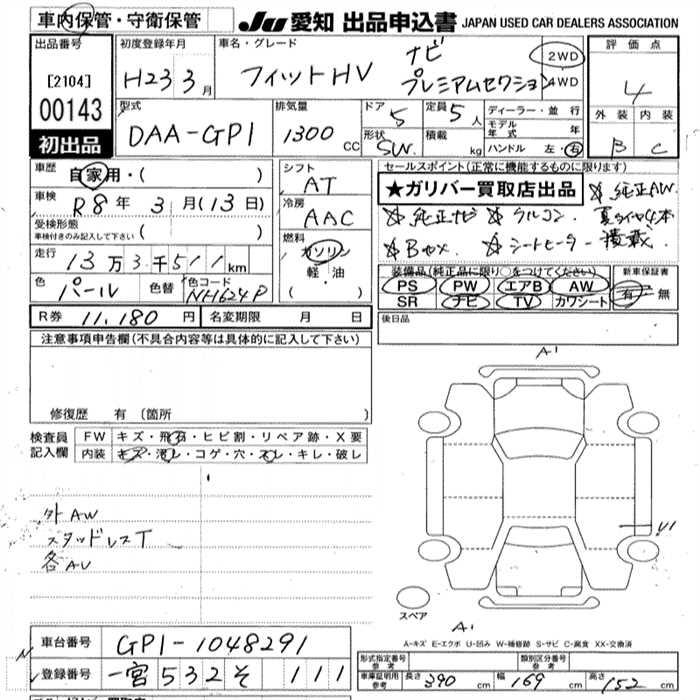 車内保管・守衛保管
JU 愛知 出品申込書 JAPAN USED CAR DEALERS ASSOCIATION
出品番号
[2104]
00143
初出品
初度登録年月
H23 3月
車名・グレード
フィットHV ナビプレミアムセクション
2WD
4WD
評価点
4
外装 内装
B C
型式
DAA-GP1
排気量
1300 CC
ドア 5
形状 SW
定員 5人
積載 kg
ディーラー・並行
モデル年式 年
ハンドル 左・右
車歴 自家用・( )
車検 R8年 3月(13日)
受検形態
車検付きのみ記入して下さい ( )
走行 13万3千511km
色 パール 色替 色コード NH624P
シフト AT
冷房 AAC
燃料 ガソリン
軽・油
( )
セールスポイント(正常に機能するものに限ります)
★ガリバー買取店出品 ☆純正AW
☆純正ナビ ☆クルコン 夏タイヤ4本
☆Bカメ ☆シートヒーター 積載
装備品(純正品に限り○をつけてください)
PS PW エアB AW
SR ナビ TV カワシート
新車保証書
有・無
R券 11,180円 名変期限 月 日
後日品
注意事項申告欄(不具合内容等は具体的に記入して下さい)
修復歴 有(箇所 )
検査員記入欄
FW キズ・飛石・ヒビ割・リペア跡・X要
内装 キズ・汚レ・コゲ・穴・スレ・キレ・破レ
外AW
スタッドレスT
各AU
A1
U1
スペア
A1
A-キズ E-エクボ U-凹み W-補修跡 S-サビ C-腐食 XX-交換済
車台番号 GP1-1048291
登録番号 一宮532そ 111
形式指定番号 参考
類別区分番号 参考
車庫証明用 参考 長さ 390 cm 幅 169 cm 高さ 152 cm